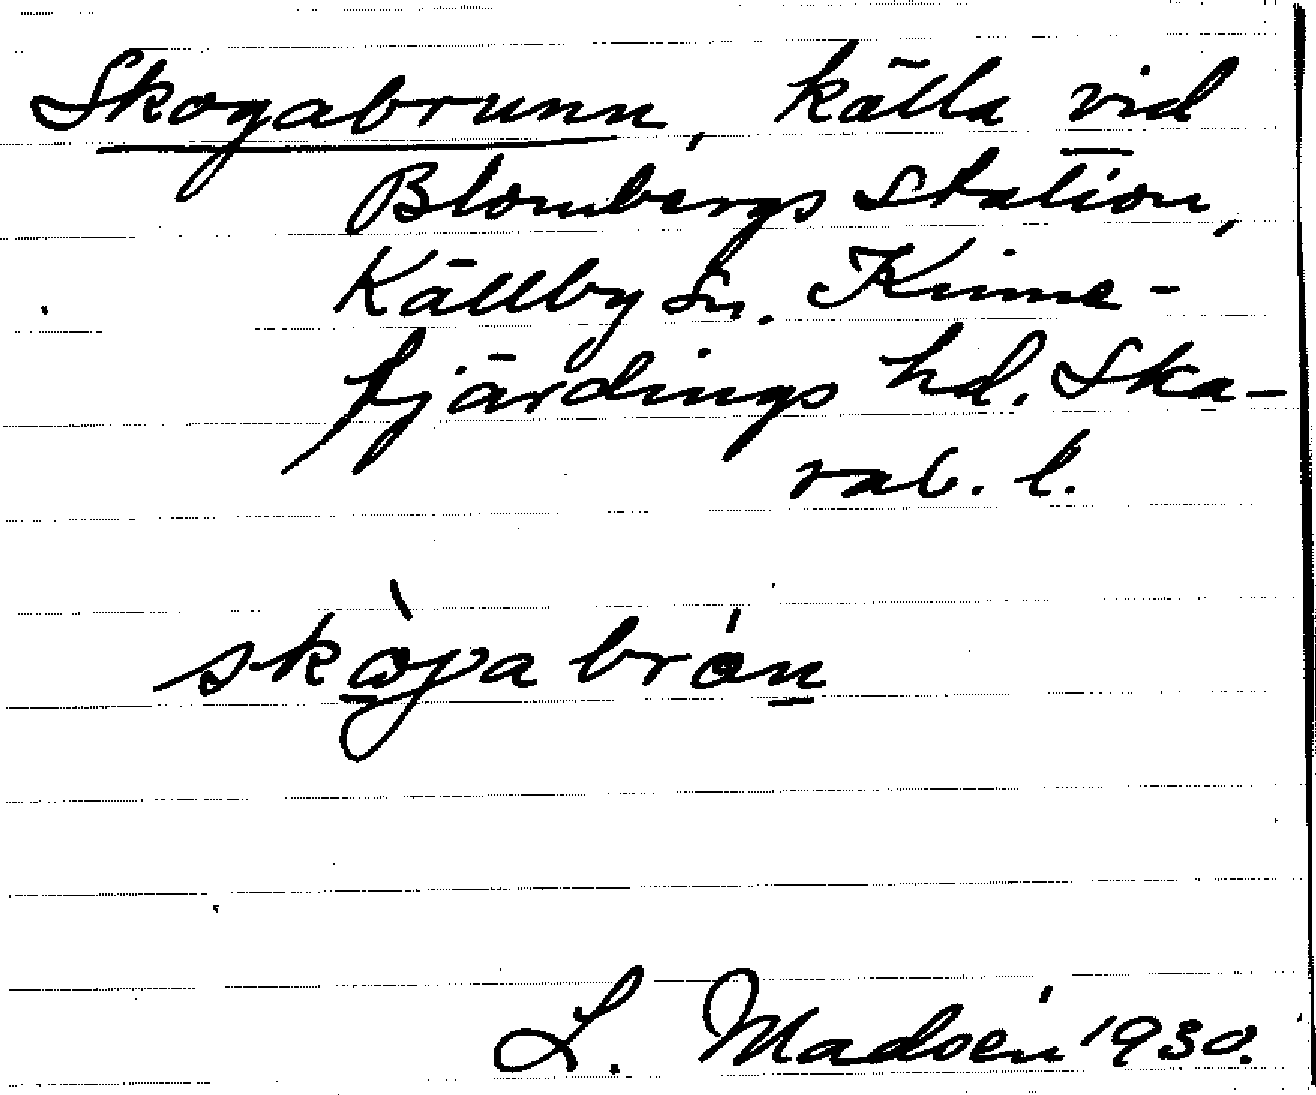 Skogabrunn, källa vid
Blombergs station,
Källby sn. Kinne-
fjärdings hd. Ska-
rab. l.
skògabrón
L. Madsén 1930.